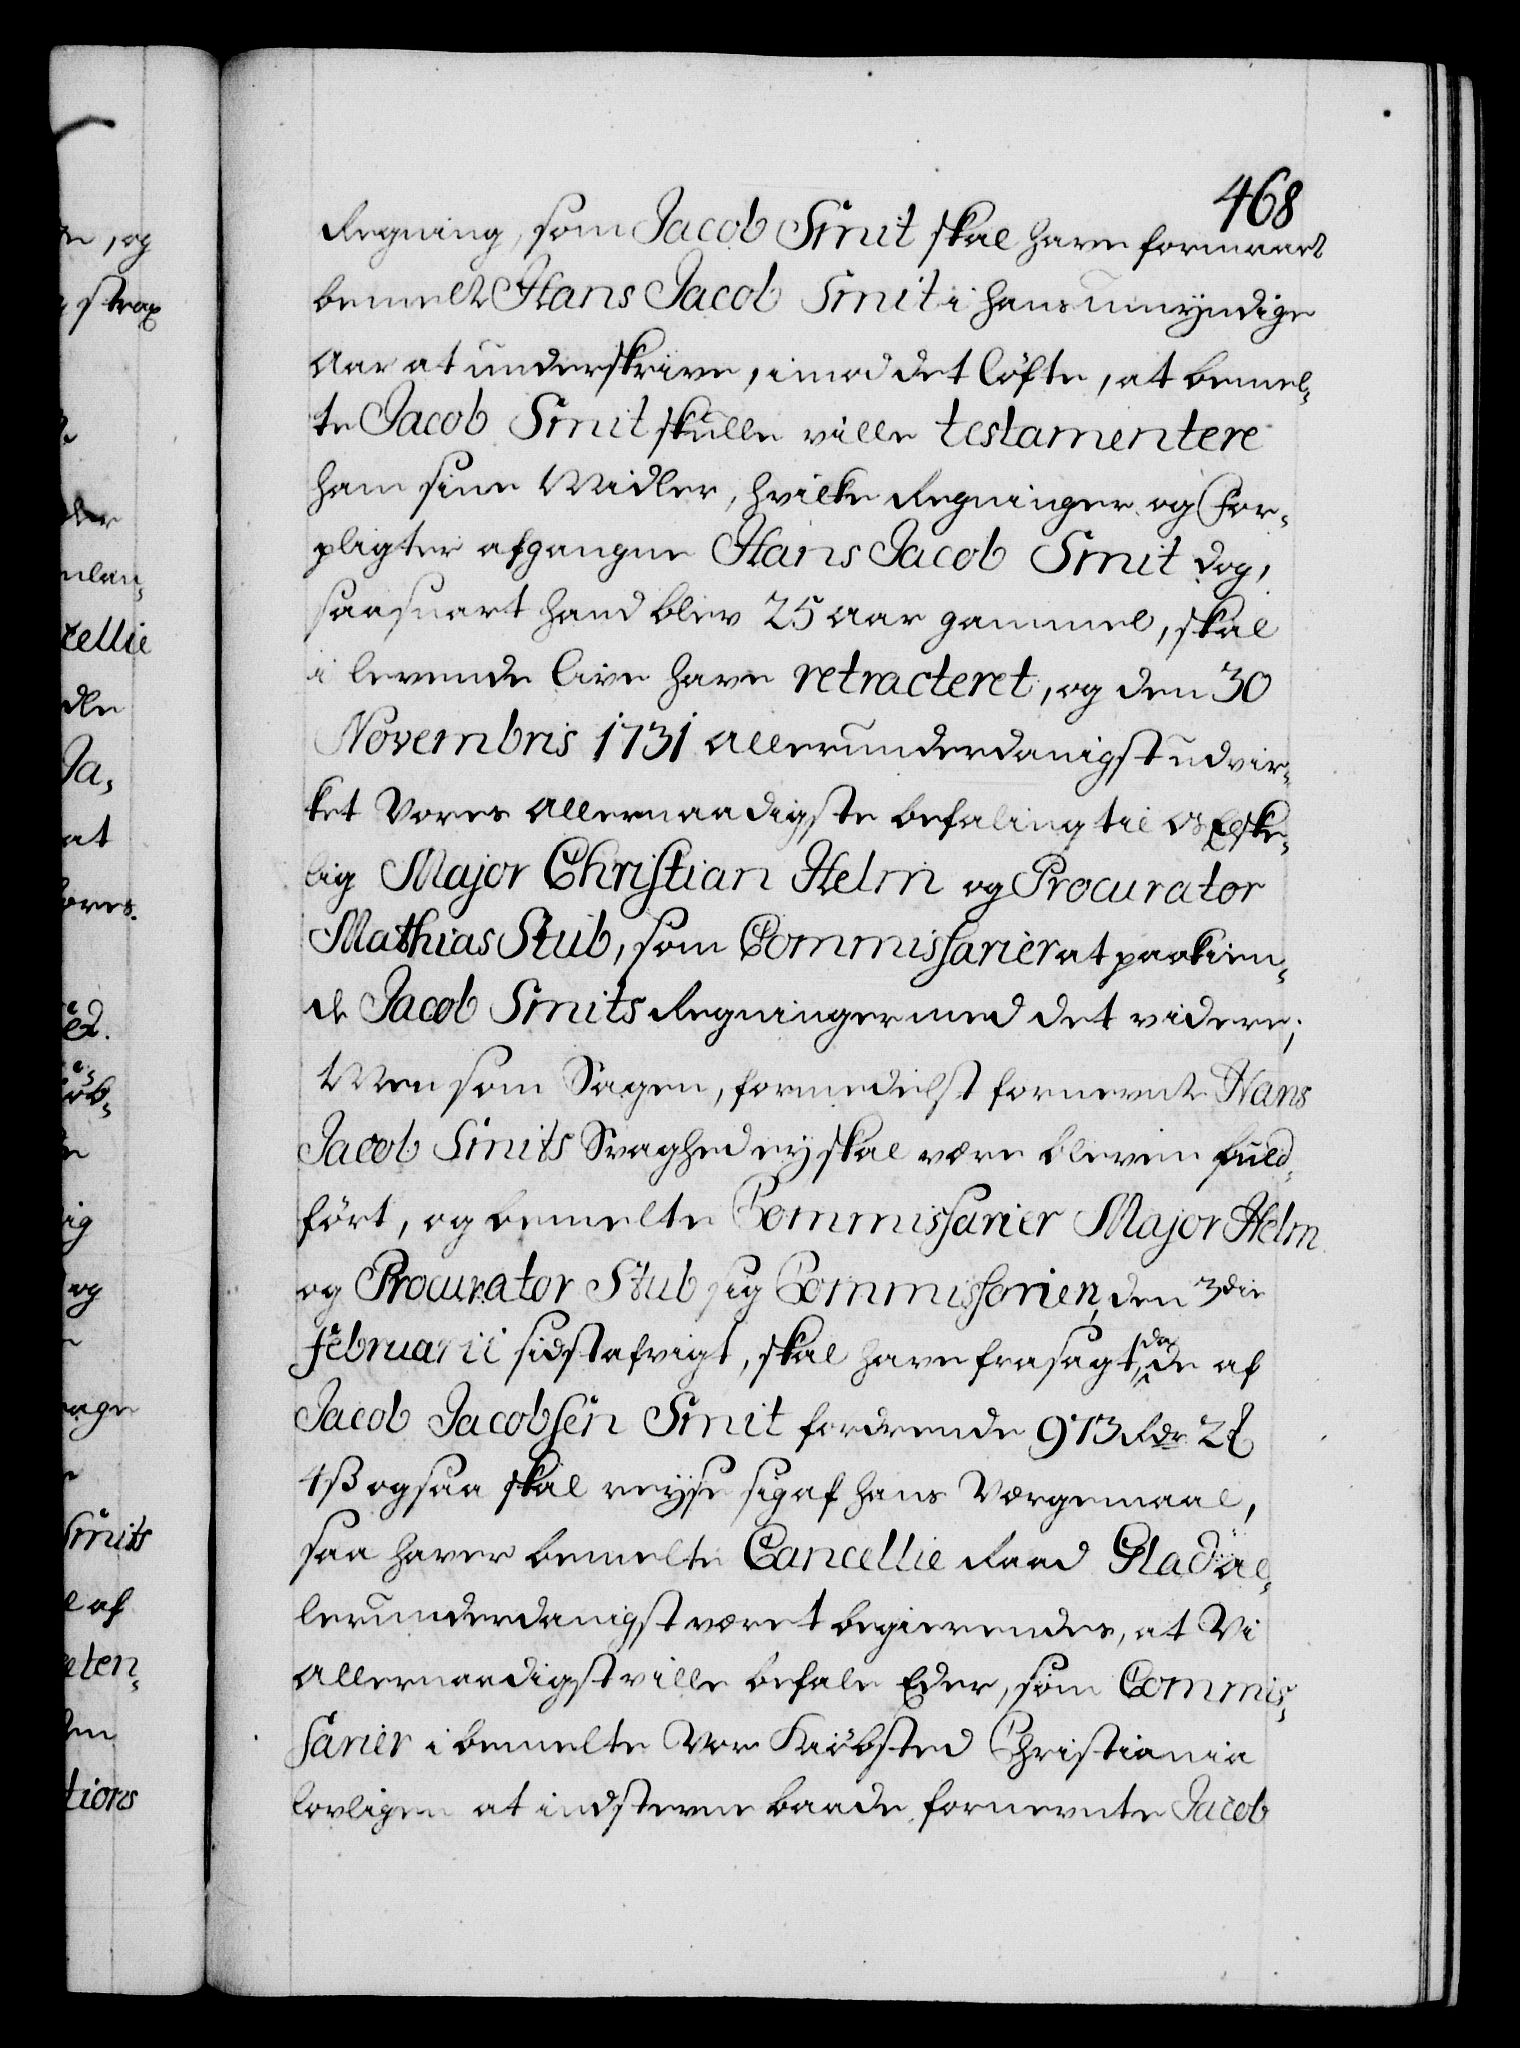 468
Regning, som Jacob Smit skal have formaaet
bemelte Hans Jacob Smit i hans umyndige
Aar at underskrive, imod det løfte, at bemel-
te Jacob Smit skulle ville testamentere
ham sine Midler, hvilke Regninger og For-
pligter afgangne Hans Jacob Smit dog,
saasnart hand blev 25 Aar gammel, skal
i levende live have retracteret, og den 30
Novembris 1731 allerunderdanigst udvir-
ket Vores allernaadigste befaling til os Elske-
lig Major Christian Helm og Procurator
Mathias Stub, som Commissarier at paakien-
de Jacob Smits Regninger med det videre;
Men som Sagen, formedelst fornevnte Hans
Jacob Smits Svaghed ey skal være bleven fuld-
ført, og bemelte Commissarier Major Helm
og Procurator Stub sig Commissorien, den 3die
Februarii sidst afvigt, skal have frasagt, da de af
Jacob Jacobsen Smit fordrende 973 Rdr 2 #
4 ß ogsaa skal reyse sig af hans Værgemaal,
saa haver bemelte Cancellie Raad Glad al-
lerunderdanigst været begierendes, at Vi
allernaadigst ville befale Eder, som Commis-
sarier i bemelte Vor Kiøbsted Christiania
lovligen at indstevne baade fornevnte Jacob
e, og
strax
der
cellie
dle
Ja-
at
ores.
ig
og
Smits
l af
eten-
tions